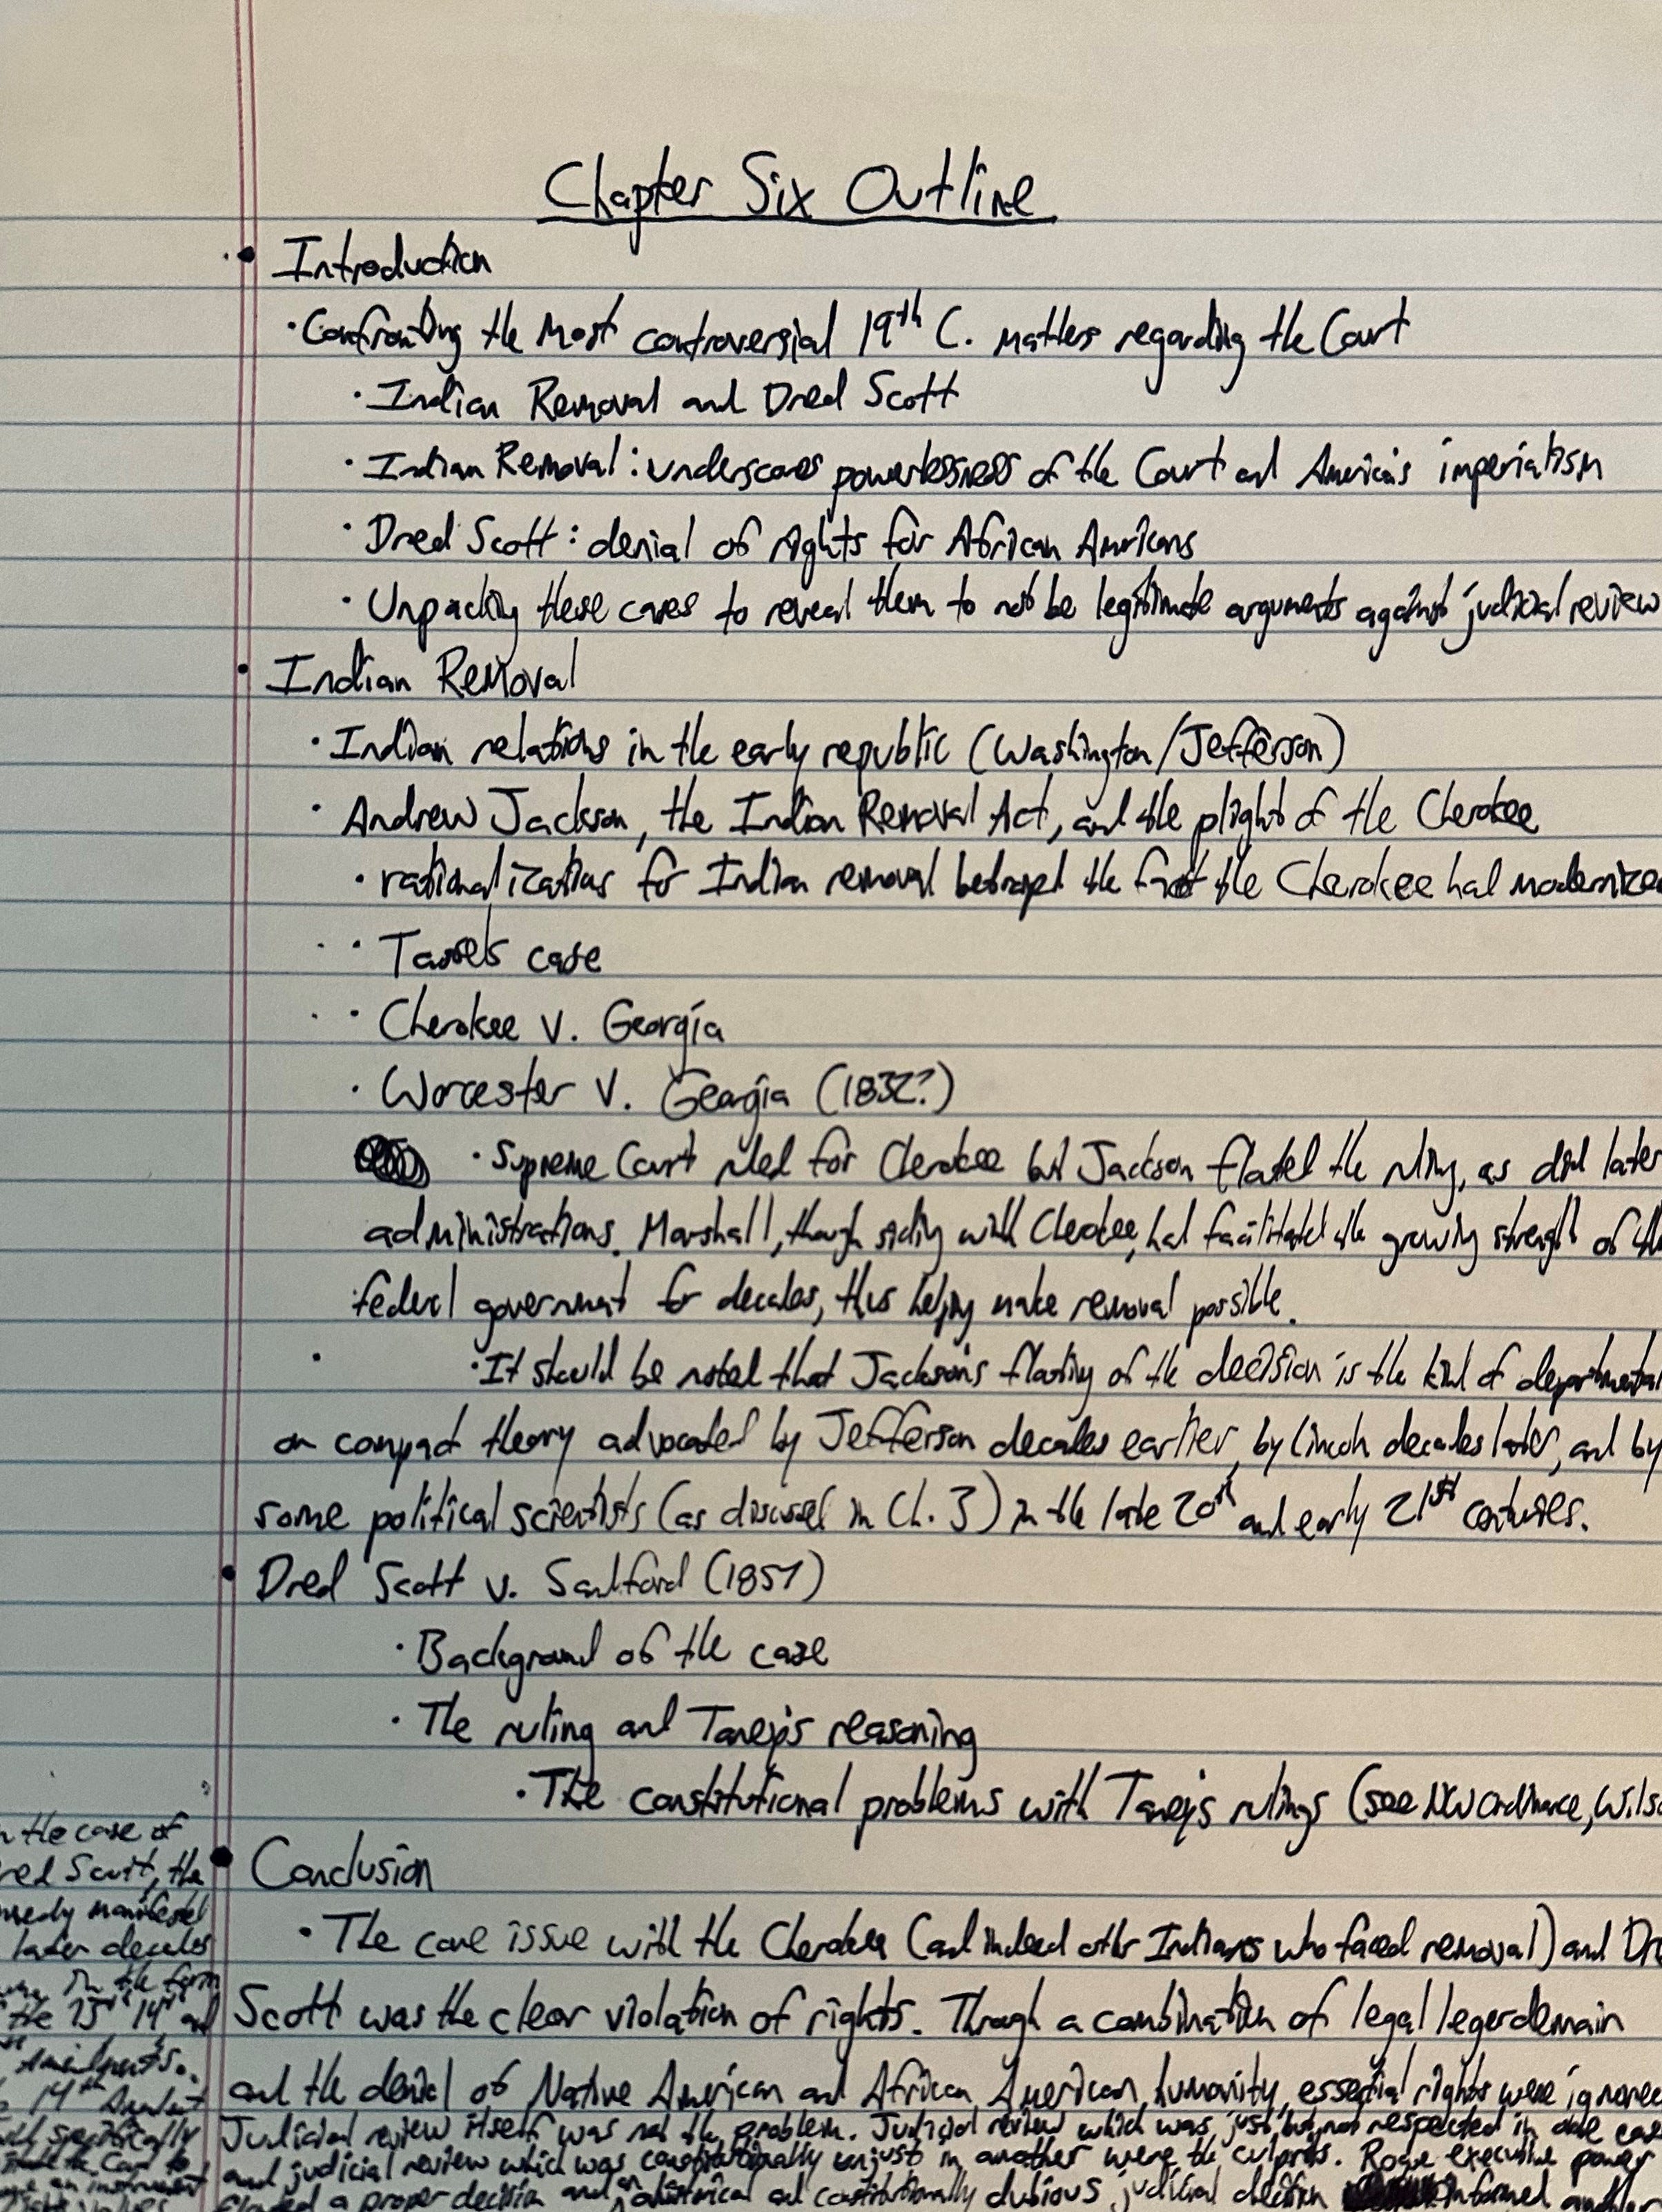 Chapter Six Outline
• Introduction
· Confronting the Most controversial 19th C. matters regarding the Court
· Indian Removal and Dred Scott
· Indian Removal: underscores powerlessness of the Court and America's imperialism
· Dred Scott: denial of rights for African Americans
· Unpacking these cases to reveal them to not be legitimate arguments against judicial review
• Indian Removal
· Indian relations in the early republic (Washington/Jefferson)
· Andrew Jackson, the Indian Removal Act, and the plight of the Cherokee
· rationalizations for Indian removal betrayed the fact the Cherokee had modernized
· Tassels case
· Cherokee v. Georgia
· Worcester v. Georgia (1832?)
· Supreme Court ruled for Cherokee but Jackson flouted the ruling, as did later
administrations. Marshall, though siding with Cherokee, had facilitated the growing strength of the
federal government for decades, thus helping make removal possible.
· It should be noted that Jackson's flouting of the decision is the kind of departmental
or compact theory advocated by Jefferson decades earlier, by Lincoln decades later, and by
some political scientists (as discussed in Ch. 3) in the late 20th and early 21st centuries.
• Dred Scott v. Sandford (1857)
· Background of the case
· The ruling and Taney's reasoning
· The constitutional problems with Taney's rulings (see NW Ordinance, Wils
• Conclusion
· The core issue with the Cherokee (and indeed other Indians who faced removal) and Dr
Scott was the clear violation of rights. Through a combination of legal legerdemain
and the denial of Native American and African American humanity, essential rights were ignored
Judicial review itself was not the problem. Judicial review which was just but not respected in one case
and judicial review which was constitutionally unjust in another were the culprits. Rogue executive power
flouted a proper decision and an ahistorical and constitutionally dubious judicial decision informed
the case of
red Scott, the
manifested
later decades
in the form
the 13th 14th and
Amendments.
14th
specifically
the Court to
an instrument
values